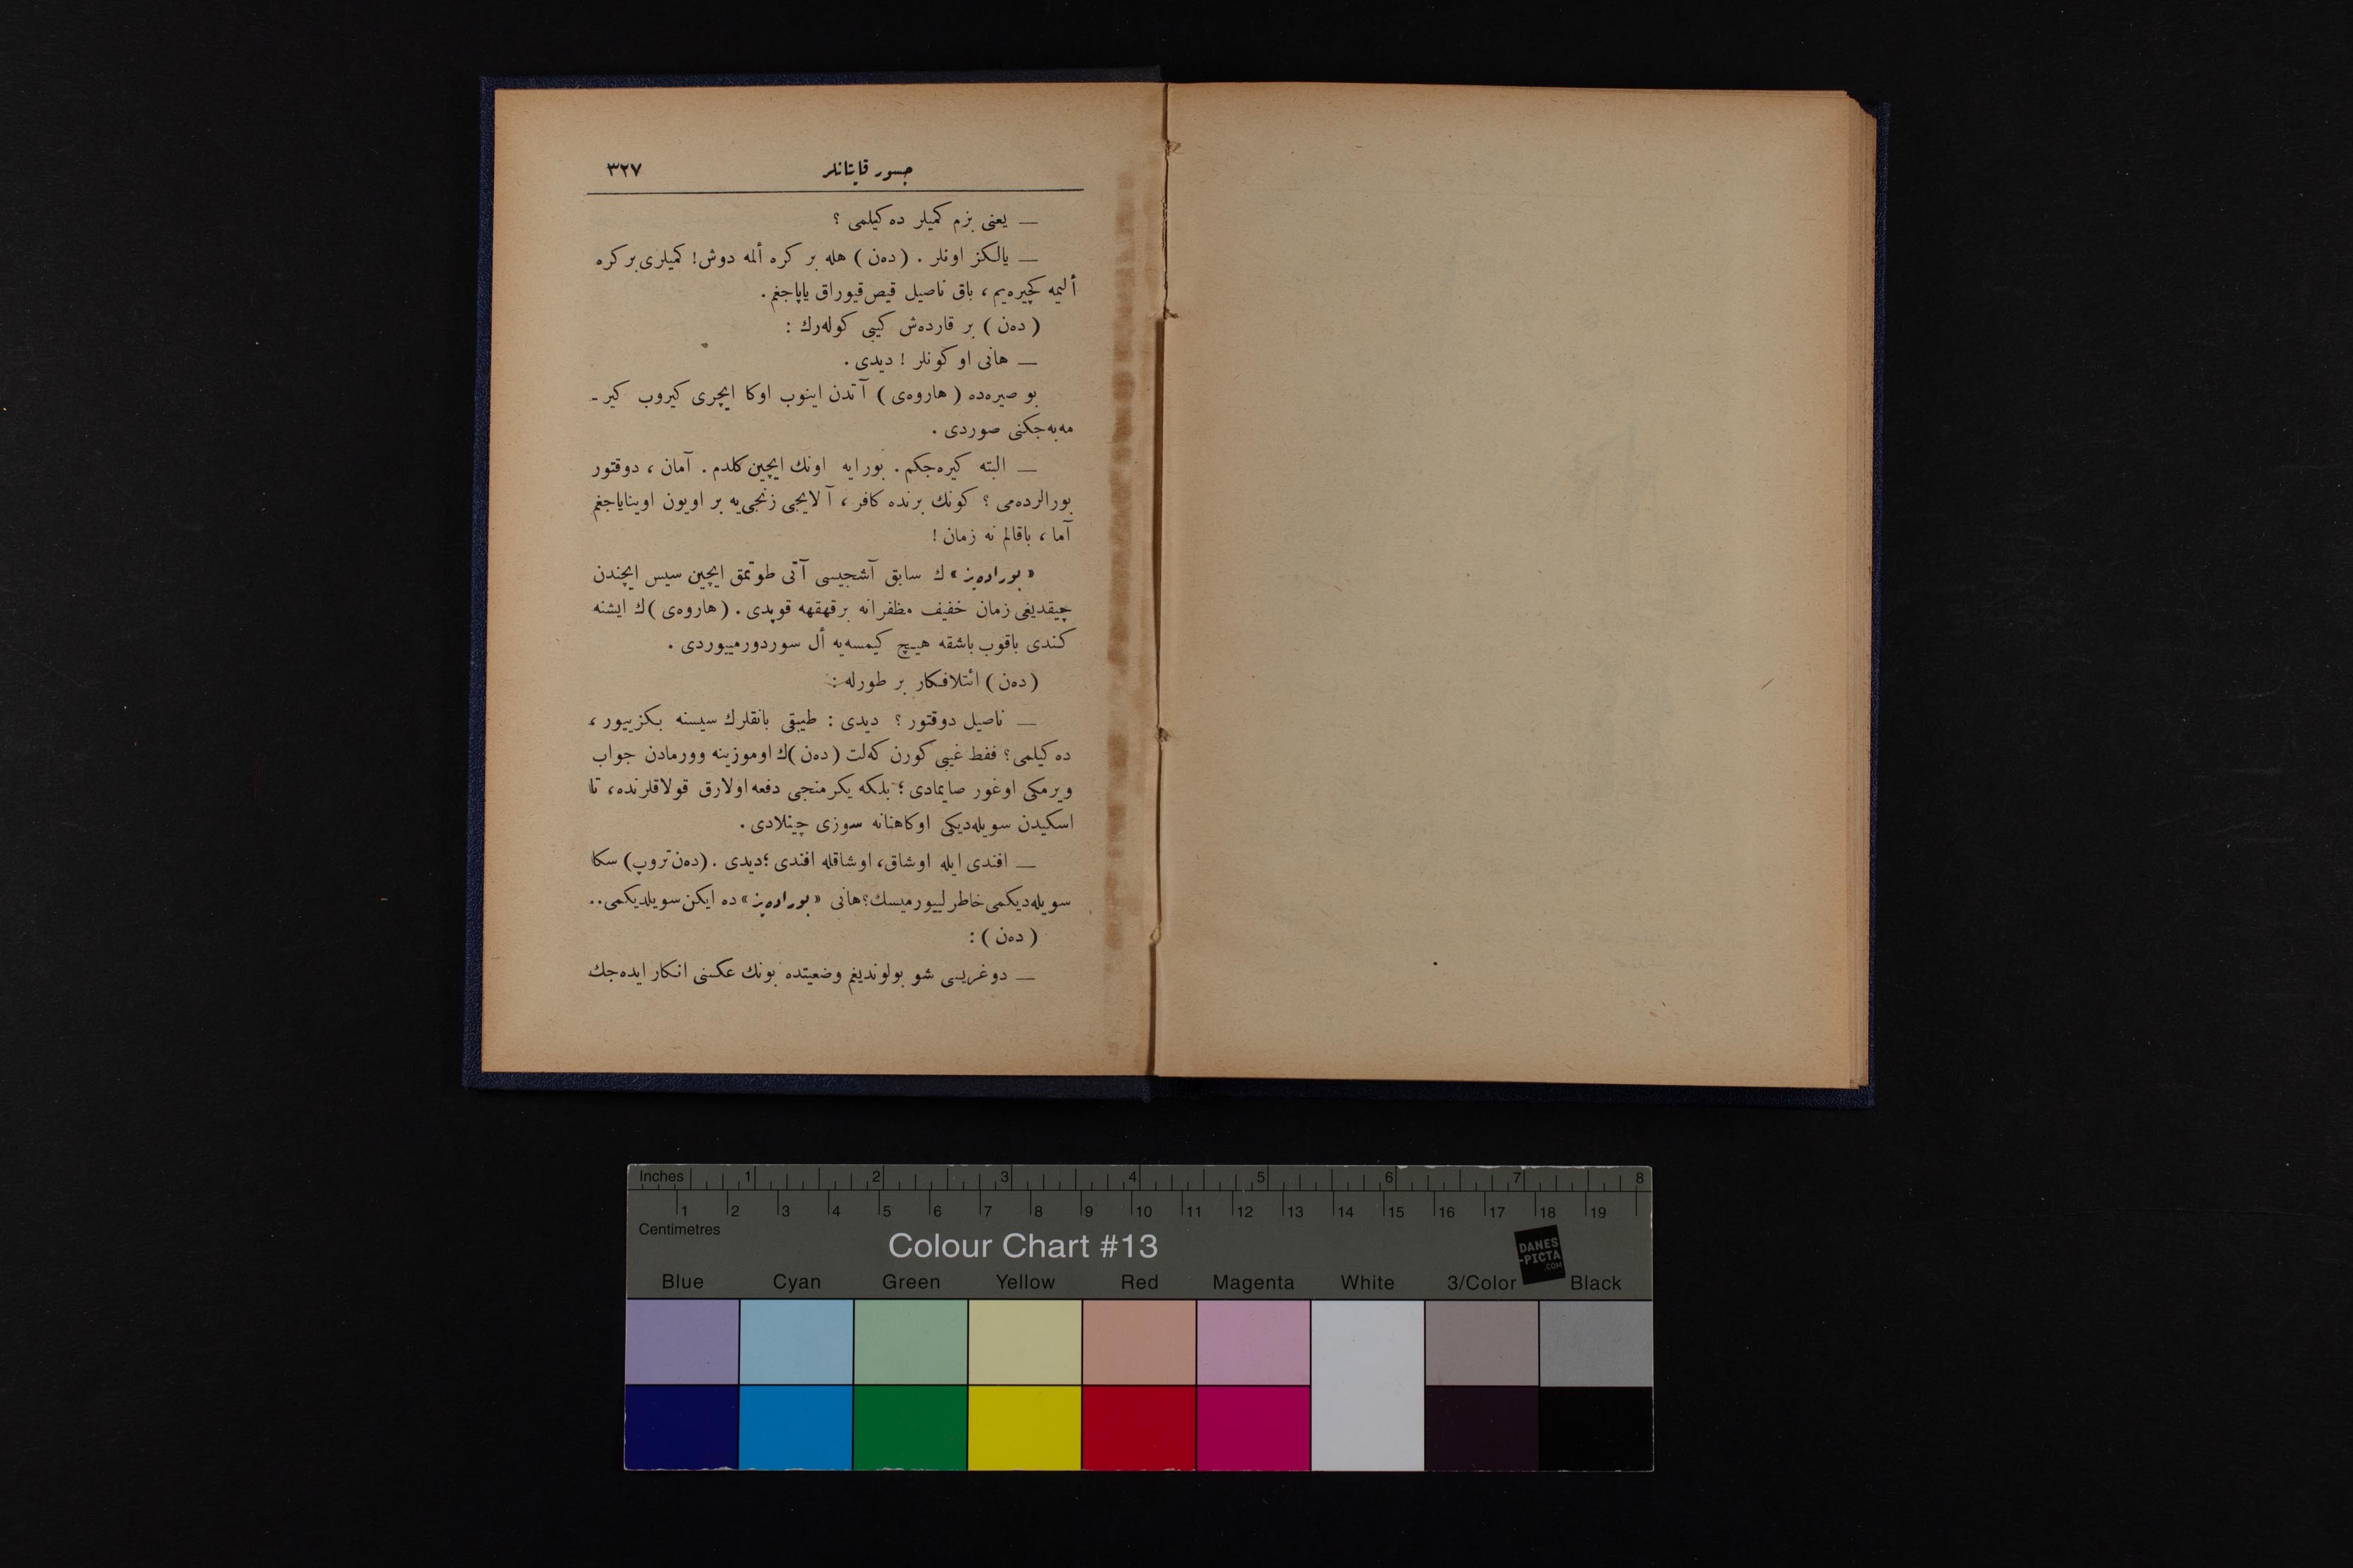 جسور قاپتانلر ٣٢٧
— یعنی بزم كمیلر ده‌كیلمی ؟
— یالكز اونلر . (ده‌ن) هله بر كره ألمه دوش! كمیلری بر كره
ألیمه كچیره‌یم ، باق ناصیل قیص‌قیوراق یاپاجغم .
(ده‌ن) بر قارده‌ش كیبی كوله‌رك :
— هانی او كونلر ! دیدی .
بو صیره‌ده (هاروه‌ی) آتدن اینوب اوكا ایچری كیروب كیر -
مه‌یه‌جكنی صوردی .
— البته كیره‌جكم . بورایه اونك ایچین كلدم . آمان ، دوقتور
بورالرده‌می ؟ كونك برنده كافر ، آلایجی زنجی‌یه بر اویون اوینایاجغم
آما ، باقالم نه زمان !
« بوراده‌یز » ك سابق آشجیسی آتی طوتمق ایچین سیس ایچندن
چیقدیغی زمان خفیف مظفرانه برقهقهه قوپدی . (هاروه‌ی) ك ایشنه
كندی باقوب باشقه هیچ كیمسه‌یه أل سوردورمییوردی .
(ده‌ن) ائتلافكار بر طورله :
— ناصیل دوقتور ؟ دیدی : طیبقی بانقلرك سیسنه بكزییور ،
ده‌كیلمی؟ فقط غیبی كورن كه‌لت (ده‌ن)ك اوموزینه وورمادن جواب
ویرمكی اوغور صایمادی ؛ بلكه یكرمنجی دفعه اولارق قولاقلرنده ، تا
اسكیدن سویله‌دیكی اوكاهنانه سوزی چینلادی .
— افندی ایله اوشاق، اوشاقله افندی ؛دیدی . (ده‌ن تروپ) سكا
سویله‌دیكمی خاطرلییورمیسك؟ هانی « بوراده‌یز » ده ایكن سویلدیكمی..
(ده‌ن) :
— دوغریسی شو بولوندیغم وضعیتده بونك عكسنی انكار ایده‌جك
Inches 1 2 3 4 5 6 7 8
1 2 3 4 5 6 7 8 9 10 11 12 13 14 15 16 17 18 19
Centimetres
Colour Chart #13
DANES
-PICTA
.COM
Blue Cyan Green Yellow Red Magenta White 3/Color Black